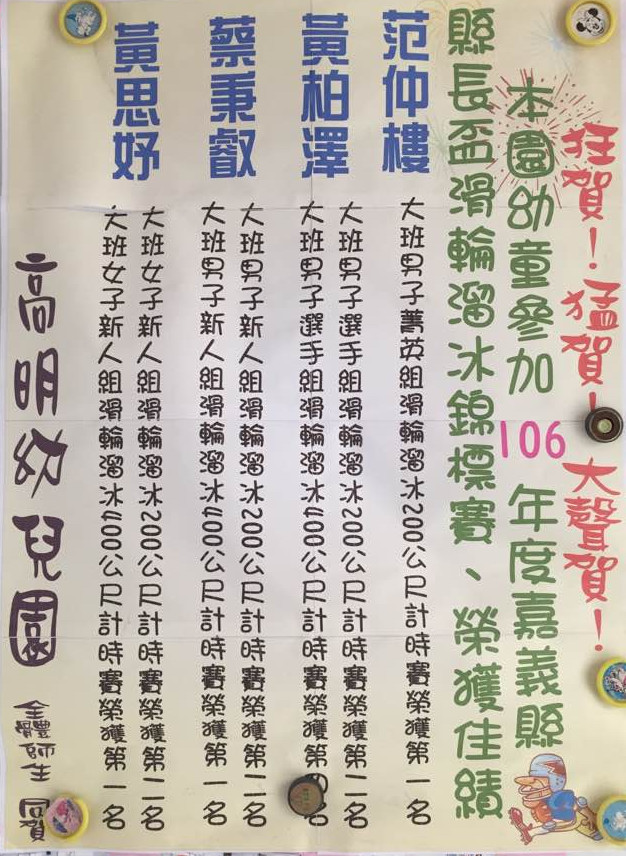 狂賀！猛賀！大聲賀！
本園幼童參加 106 年度嘉義縣
縣長盃滑輪溜冰錦標賽、榮獲佳績
范仲樓
大班男子菁英組滑輪溜冰200公尺計時賽榮獲第一名
黃柏澤
大班男子選手組滑輪溜冰200公尺計時賽榮獲第二名
大班男子選手組滑輪溜冰400公尺計時賽榮獲名
蔡秉叡
大班男子新人組滑輪溜冰200公尺計時賽榮獲第二名
大班男子新人組滑輪溜冰400公尺計時賽榮獲第一名
黃思妤
大班女子新人組滑輪溜冰200公尺計時賽榮獲第二名
大班女子新人組滑輪溜冰400公尺計時賽榮獲第一名
高明幼兒園 全體師生 同賀